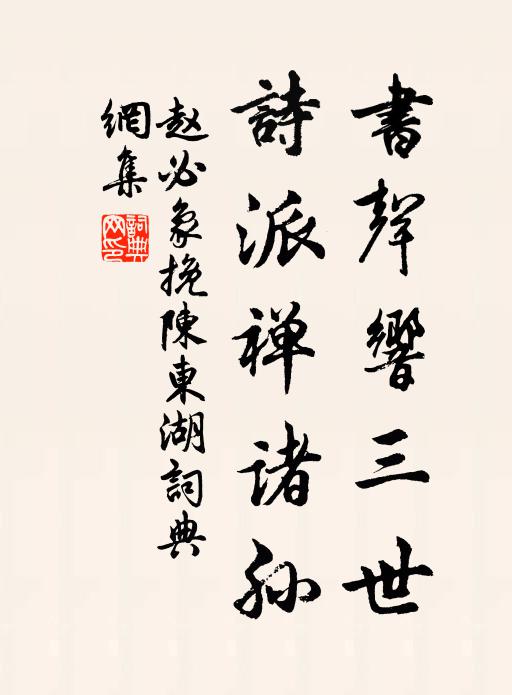 書聲響三世
詩派禅诸孙
赵必象挽陳東湖詞典
網集
詞典
网印